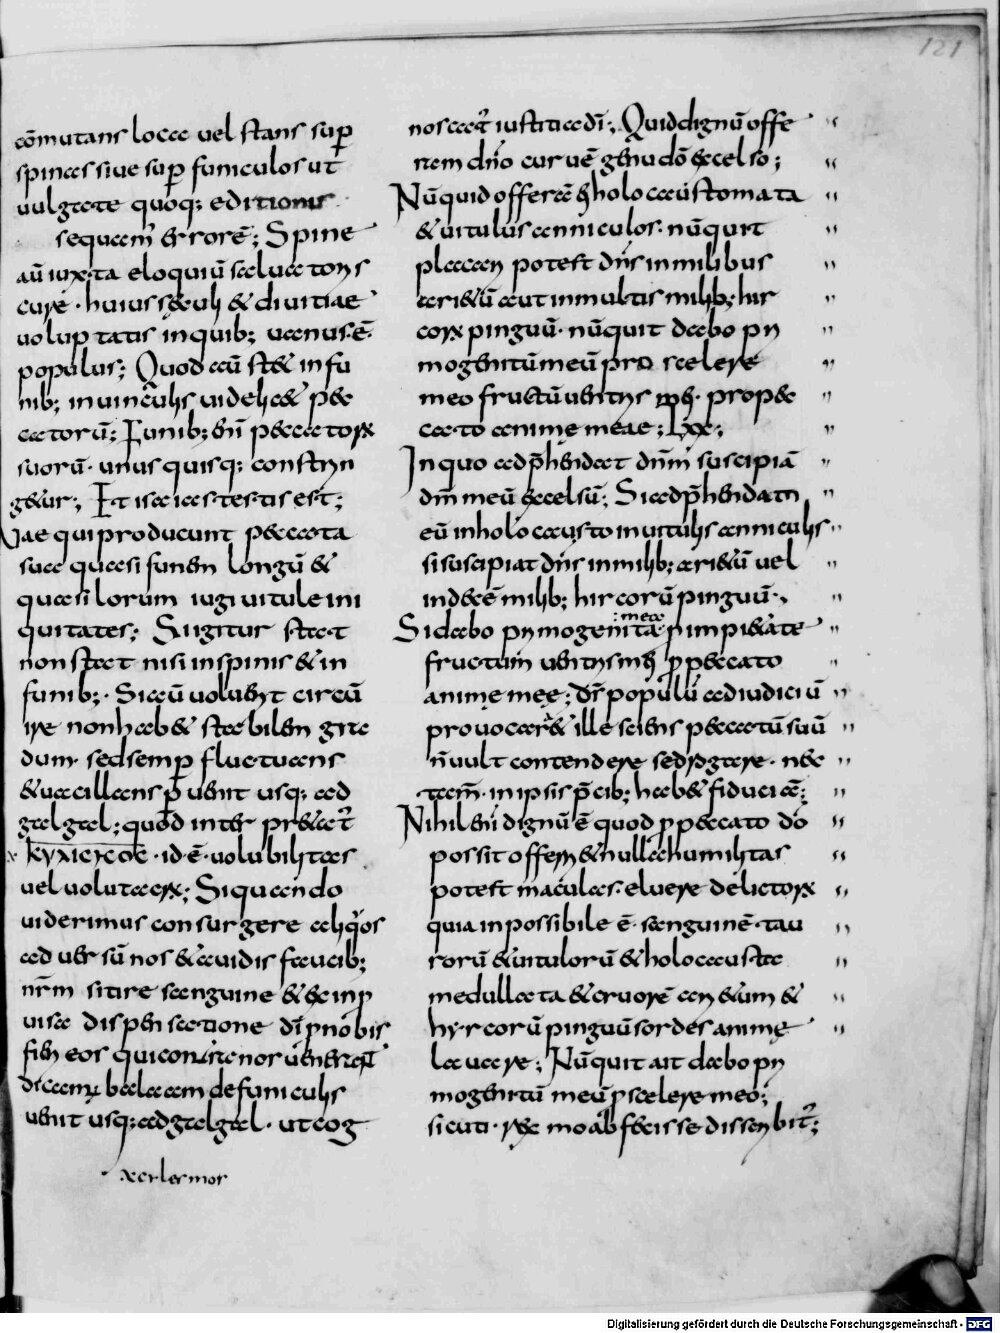 121
cōmutans loca uel stans sup̄
spinas siue sup̄ funiculos ut
uulgate quoq; editionis
sequam̄ errorē; Spine
aū iuxta eloquiū saluatoris
cure huius sęculi & diuitiae
uoluptatis in quib; uanus ē
populus; Quod aū st& in fu
nib; in uinculis uidelic& pec
catorū; Funib; eni peccatorū
suorū unus quisq; constrin
getur; Et isaias testis est;
Vae qui producunt peccata
sua quasi funem longū &
quasi lorum iugi uitule ini
quitates; Si igitur stat
non stat nisi in spinis & in
funib; Si aū uoluerit circū
ire non hab& stabilem gra
dum sed semp̄ fluctuans
& uacillans p uenit usq; ad
galgal; quod interpr&at̄
id ē uolubilitas
uel uolutatio; Si quando
uiderimus consurgere aliquos
aduersū nos & auidis faucib;
nr̄m sitire sanguine & ex inp
uisa dispensatione dī p nobis
fieri eos qui contrarii
dicam balaam de funiculis
uenit usq; ad galgal ut cog
noscat̄ iustitia dī; Quid dignū offe
rem dn̄o curuē genu dō excelso;
Nūquid offerā ei holocaustomata
& uitulus anniculos nūquit
placari potest dn̄s in milibus
ari&ū aut in multis milib; hir
corū pinguū nūquit dabo pri
mogenitū meū pro scelere
meo fructū uentris mei propec
cato anime meae; LXX;
In quo adp̄hendat dn̄m suscipiā
dm̄ meū excelsū; Si adp̄hendam
eū in holocausto in uitulis anniculis
si suscipiat dn̄s in milib; ari&ū uel
in decē milib; hircorū pinguū
Si dabo primogenita mea p impi&ate
fructum uentris mei p peccato
anime meę; dr̄ populū ad iudiciū
prouocar& ille sciens peccatū suū
n̄ uult contendere sed rogare nec
tam̄ in ipsis p̄cib; hab& fiduciā;
Nihil eni dignū ē quod p peccato dō
possit offerri & nulla humilitas
potest maculas eluere delictorū
quia inpossibile ē sanguinē tau
rorū & uitulorū & holocausta
medullata & cruorē ari&um &
hyrcorū pinguū sordes animę
lauare; Nūquit ait dabo pri
mogenitū meū p scelere meo;
sicuti rex moab fecisse